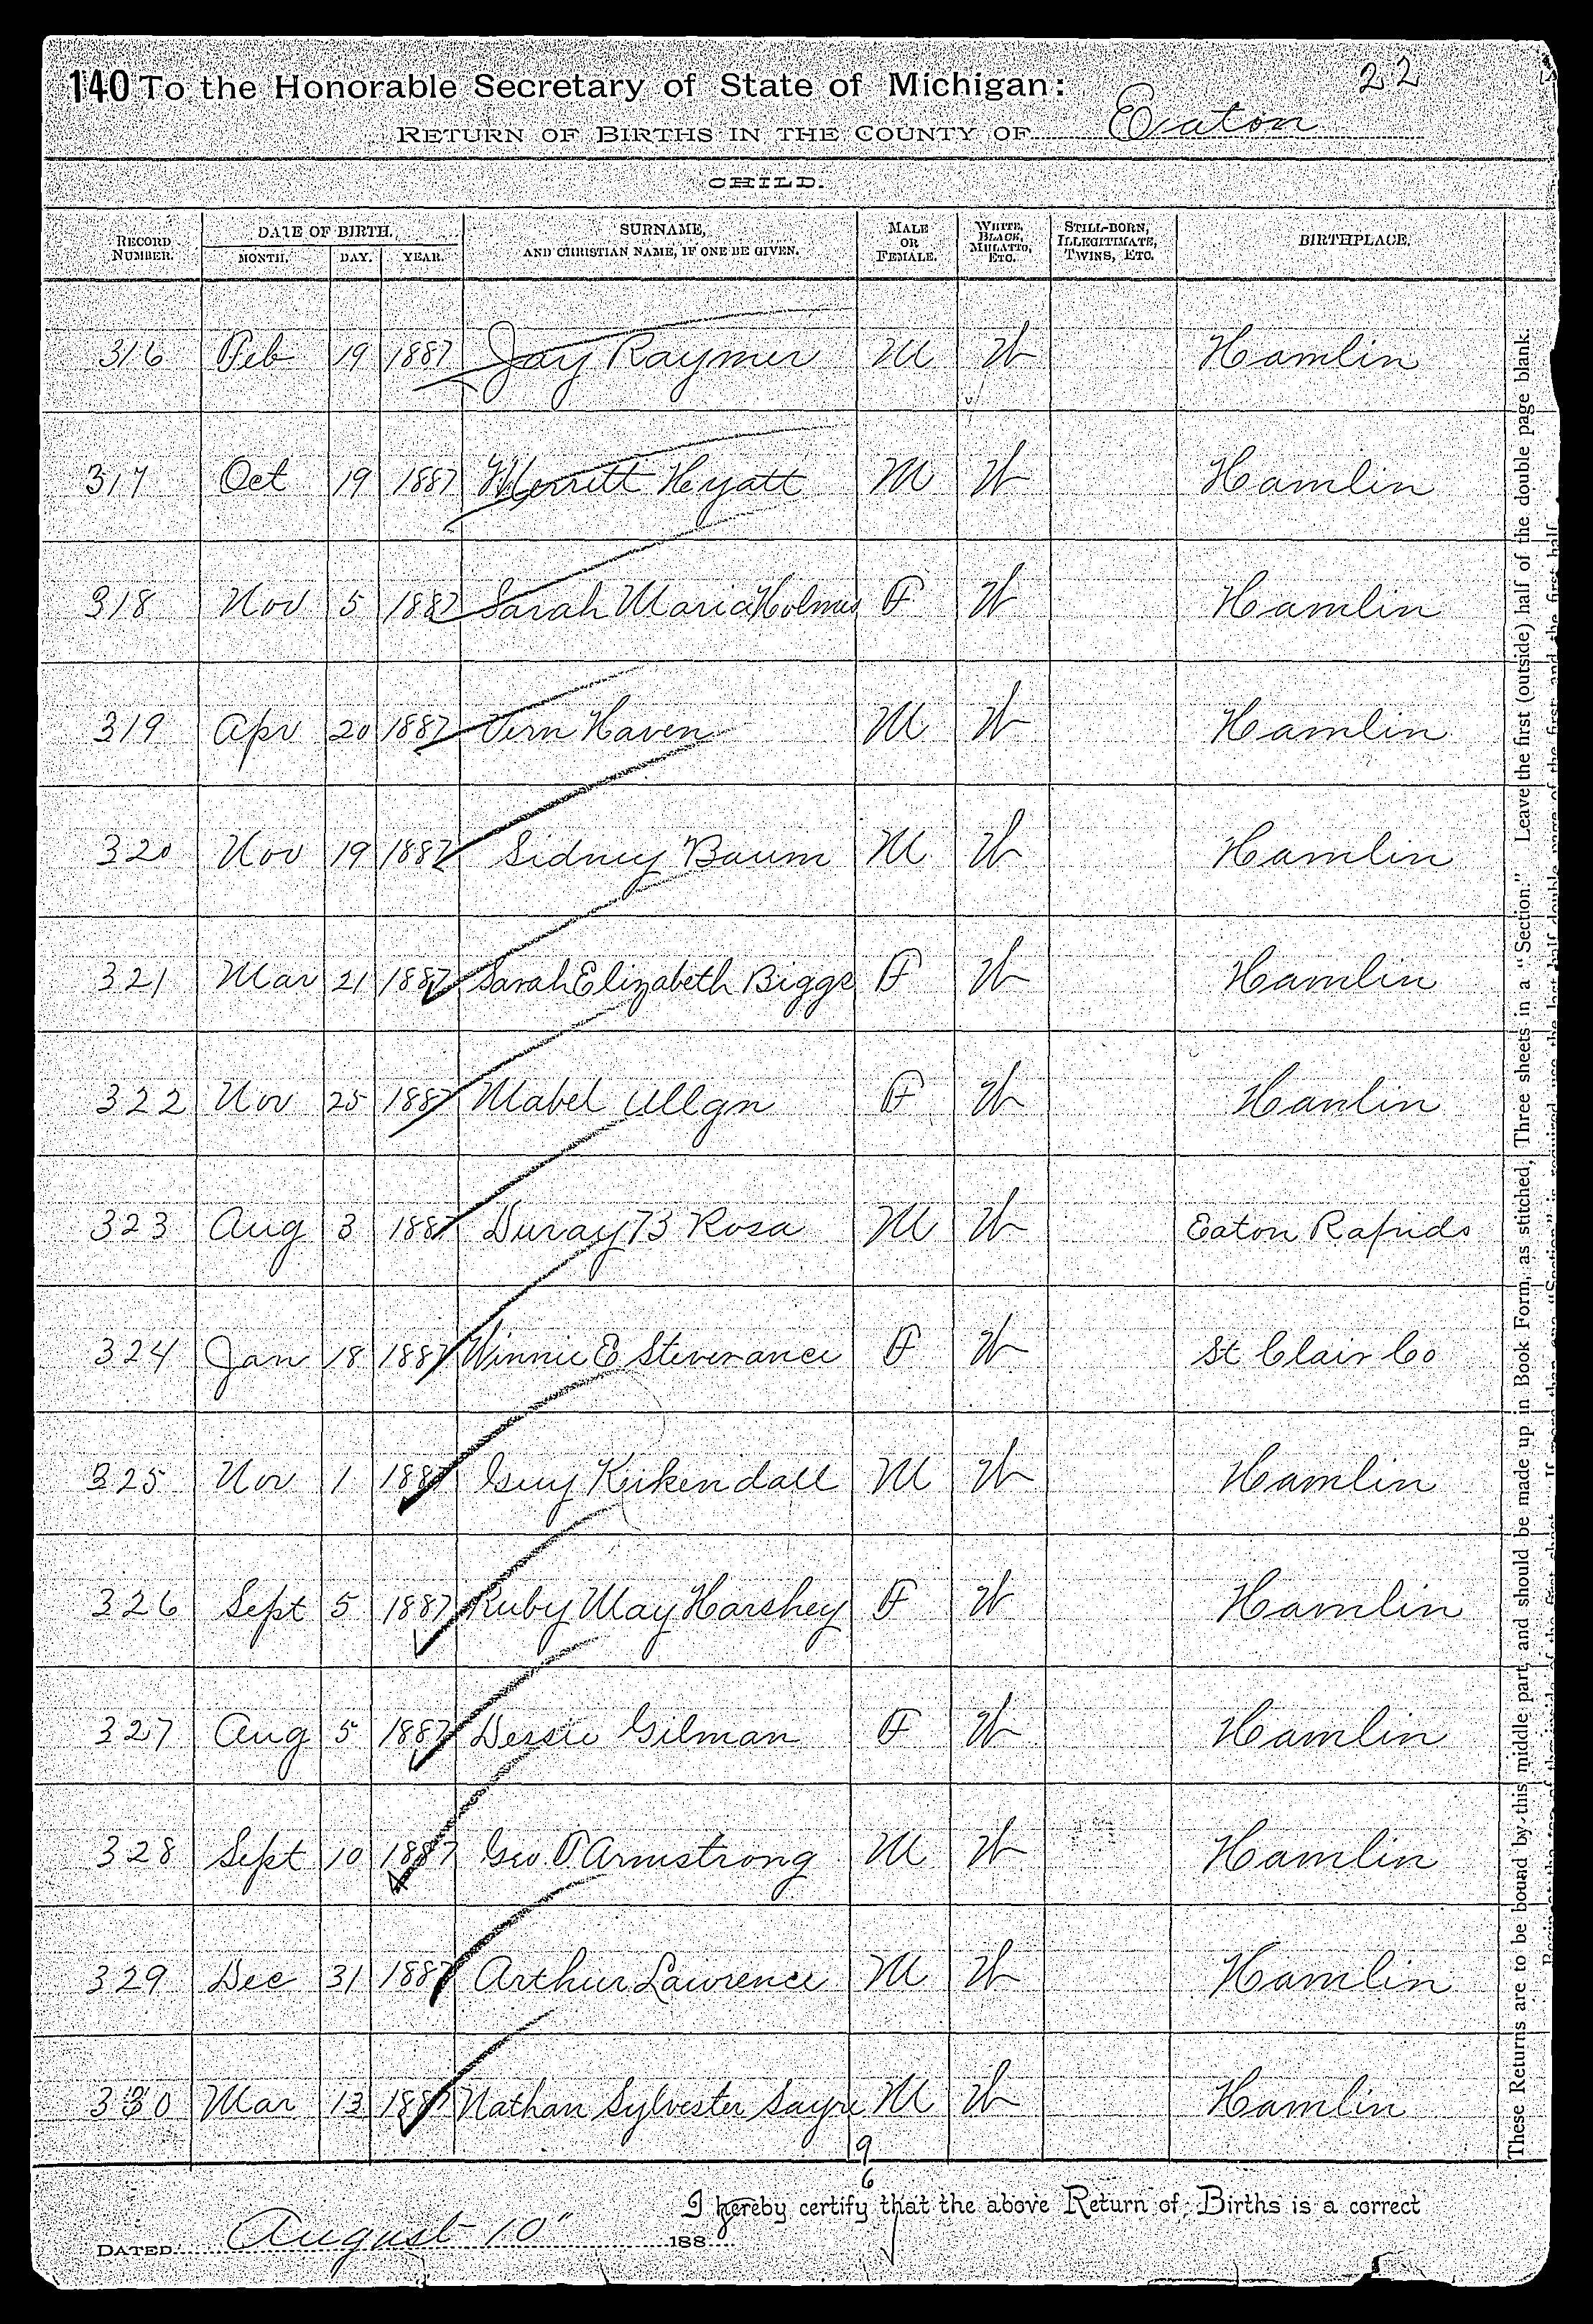 140 To the Honorable Secretary of State of Michigan: 22
RETURN OF BIRTHS IN THE COUNTY OF Eaton
CHILD.
RECORD NUMBER. DATE OF BIRTH. MONTH. DAY. YEAR. SURNAME, AND CHRISTIAN NAME, IF ONE BE GIVEN. MALE OR FEMALE. WHITE, BLACK, MULATTO, ETC. STILL-BORN, ILLEGITIMATE, TWINS, ETC. BIRTHPLACE.
316 Feb 19 1887 Jay Raymer M W Hamlin
317 Oct 19 1887 Merritt Hyatt M W Hamlin
318 Nov 5 1887 Sarah Maria Holmes F W Hamlin
319 Apr 20 1887 Vern Haven M W Hamlin
320 Nov 19 1887 Sidney Baum M W Hamlin
321 Mar 21 1887 Sarah Elizabeth Biggs F W Hamlin
322 Nov 25 1887 Mabel F W Hamlin
323 Aug 3 1887 Duray B Rosa M W Eaton Rapids
324 Jan 18 1887 Winnie E Steverance F W St Clair Co
325 Nov 1 1887 Guy Kirkendall M W Hamlin
326 Sept 5 1887 Ruby May Harshey F W Hamlin
327 Aug 5 1887 Dessie Gilman F W Hamlin
328 Sept 10 1887 Geo. F Armstrong M W Hamlin
329 Dec 31 1887 Arthur Lawrence M W Hamlin
330 Mar 13 1887 Nathan Sylvester Sayre M W Hamlin
9
6
I hereby certify that the above Return of Births is a correct
DATED August 10" 188
These Returns are to be bound by this middle part, and should be made up in Book Form, as stitched, Three sheets in a "Section." Leave the first (outside) half of the double page blank.